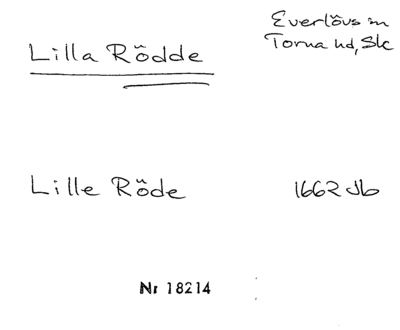 Everlövs sn
Lilla Rödde Torna hd, Sk
Lille Röde 1662 Jb
Nr 18214